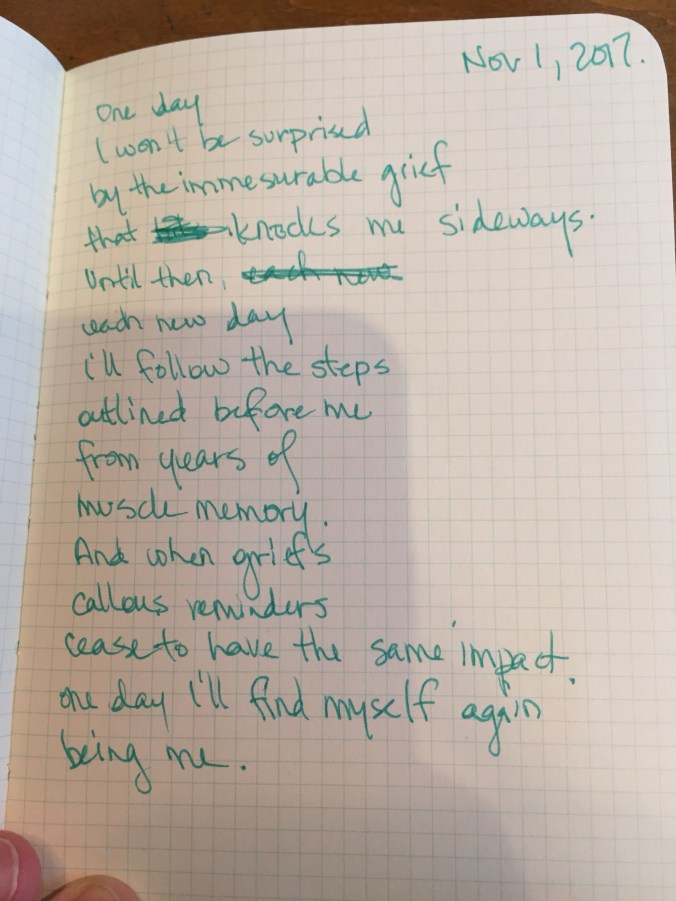 Nov 1, 2017.
One day
I won't be surprised
by the immesurable grief
that knocks me sideways.
Until then, each new
each new day
i'll follow the steps
outlined before me
from years of
muscle memory.
And when grief's
callous reminders
cease to have the same impact.
one day I'll find myself again
being me.